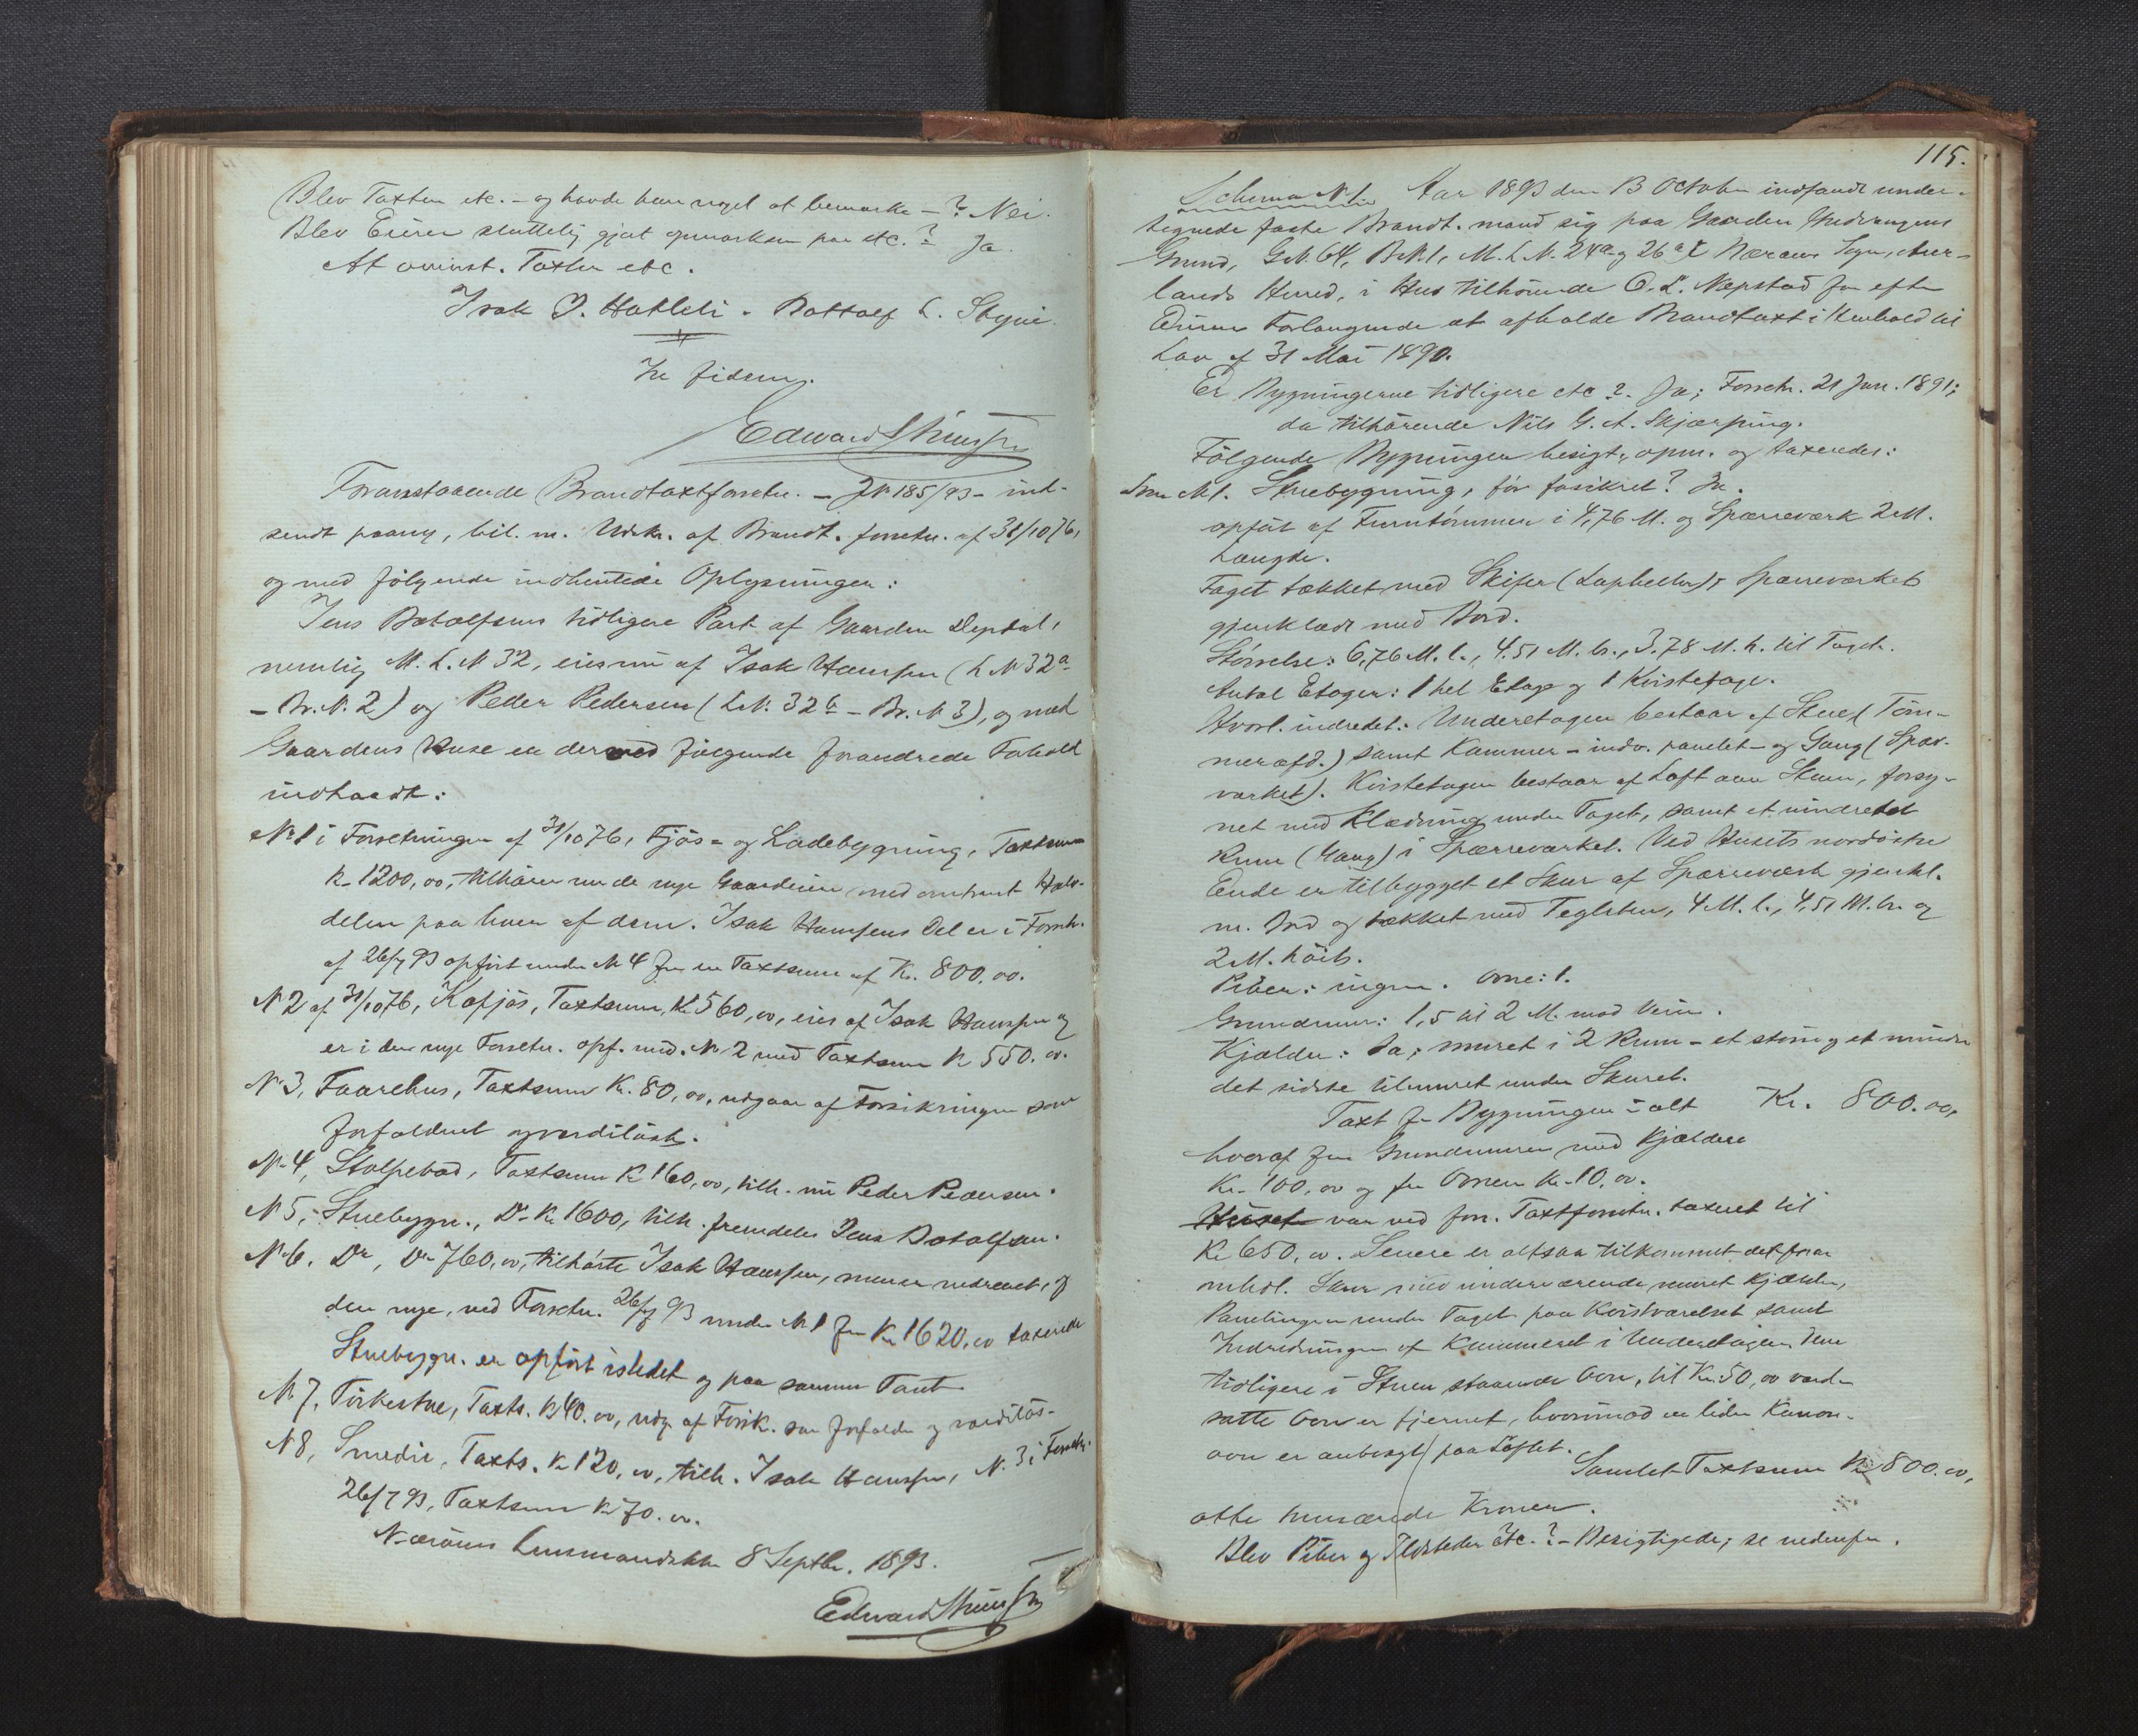 Blev Taxten etc. – og havde han noget at bemærke –? Nei.
Blev Eieren sluttelig gjort opmærksom paa etc.? Ja.
At ovenst. Taxter etc.
Isak J. Hatleli. Bottolf L. Stigni.
In fidem.
Edward
Foranstaaende Brandtaxtforretn. – J№ 185/93 – ind-
sendt paany, bil. m. Udskr. af Brandt.forretn. af 31/10 76,
og med følgende indhentede Oplysninger:
Jens Botolfsens tidligere Part af Gaarden Dyrdal,
nemlig M. L. № 32, eies nu af Isak Hansen (L № 32a
– Br. №. 2) og Peder Pedersen (L.№. 32b – Br. № 3), og med
Gaardens Huse er dermed følgende forandrede Forhold
indtraadt:
№ 1 i Forretningen af 31/10 76, Fjøs- og Ladebygning, Taxtsum
Kr. 1200,00, tilhører nu de nye Gaardeiere med omtrent Halv-
delen paa hver af dem. Isak Hansens Del er i Forretn.
af 26/7 93 opført under № 4 for en Taxtsum af Kr. 800,00.
№ 2 af 31/10 76, Kofjøs, Taxtsum, Kr 560,00, eies af Isak Hansen og
er i den nye Forretn. opf. und. № 2 med Taxtsum Kr 550.00.
№ 3, Faarehus, Taxtsum Kr. 80,00, udgaar af Forsikringen som
forfaldent og værdiløst.
№ 4, Stolpebod, Taxtsum Kr 160,00, tilh. nu Peder Pedersen.
№ 5, Stuebygn., Do Kr 1600, tilh. fremdeles Jens Botolfsen.
№ 6. Do, Do 760,00, tilhørte Isak Hansen, men er nedrevet, og
den nye, ved Forretn. 26/7 93 under № 1 for Kr 1620,00 taxerede
Stuebygn. er opført istedet og paa samme Tomt.
№ 7. Tørkestue, Taxts. Kr 40.00, udg. af Forsik. som forfalden og værdiløs.
№ 8, Smedie, Taxts. Kr 120,00, tilh. Isak Hansen, №. 3 i Forretn.
26/7 93, Taxtsum Kr 70.00.
Nærøens Lensmandsktr 8 Septbr. 1893.
Edward
115.
Schema № 1. Aar 1893 den 13 October indfandt under-
tegnede faste Brandt.mænd sig paa Gaarden
Grund, G.№. 64, B.№. 1, M. L. №. 24a og 26a i Nærøens Sogn, Aur-
lands Herred, i Hus tilhørende O. L. Nepstad for efter
Eierens Forlangende at afholde Brandtaxt i Henhold til
Lov af 31 Mai 1890.
Er Bygningerne tidligere etc? Ja; Forretn. 21 Jan. 1891;
da tilhørende Nils G. A. Skjerping.
Følgende Bygninger besigt., opm. og taxeredes:
Som № 1. Stuebygning, før forsikret? Ja.
opført af Furutømmer i 4,76 M. og Spærreværk 2 M.
Længde.
Taget tækket med Skifer (Laphelle); Spærreværket
gjenklædt med Bord.
Størrelse: 6,76 M. l., 4.51 M. br., 3.78 M. h. til Taget.
Antal Etager: 1 hel Etage og 1 Kvistetage.
Hvorl. indredet: Underetagen bestaar af Stue (Tøm-
merafd.) samt Kammer – indv. panelet – og Gang (Spær-
værket). Kvistetagen bestaar af Loft over Stuen, forsy-
net med Klædning under Taget, samt et uindredet
Rum (Gang) i Spærreværket. Ved Husets nordøstre
Ende er tilbygget et Skur af Spærreværk gjenkl.
m. Bord og tækket med Teglsten, 4 M. l., 4,51 M. br. og
2 M. høit.
Piber: ingen. Ovne: 1.
Grundmur: 1,5 til 2 M. mod Veien.
Kjælder: Ja; muret i 2 Rum – et større og et mindre
det sidste tilmuret under Skuret.
Taxt for Bygningen ialt Kr. 800.00,
hvoraf for Grundmuren med Kjældere
Kr. 100,00 og for Ovnen Kr. 10,00.
Huset var ved forr. Taxtforretn. taxeret til
Kr 650,00. Senere er altsaa tilkommet det foran
omhdl. Skur med underværende muret Kjælder,
Panelingen under Taget paa Kvistværelset samt
Indredningen af Kammeret i Underetagen. Den
tidligere i Stuen staaende Ovn, til Kr. 50,00 værd-
satte Ovn er fjernet, hvorimod en liden Kanon-
ovn er anbragt paa Loftet.
Samlet Taxtsum Kr 800.00,
otte hundrede Kroner.
Blev Piber og Ildsteder etc.? – Besigtigede; se nedenfor.